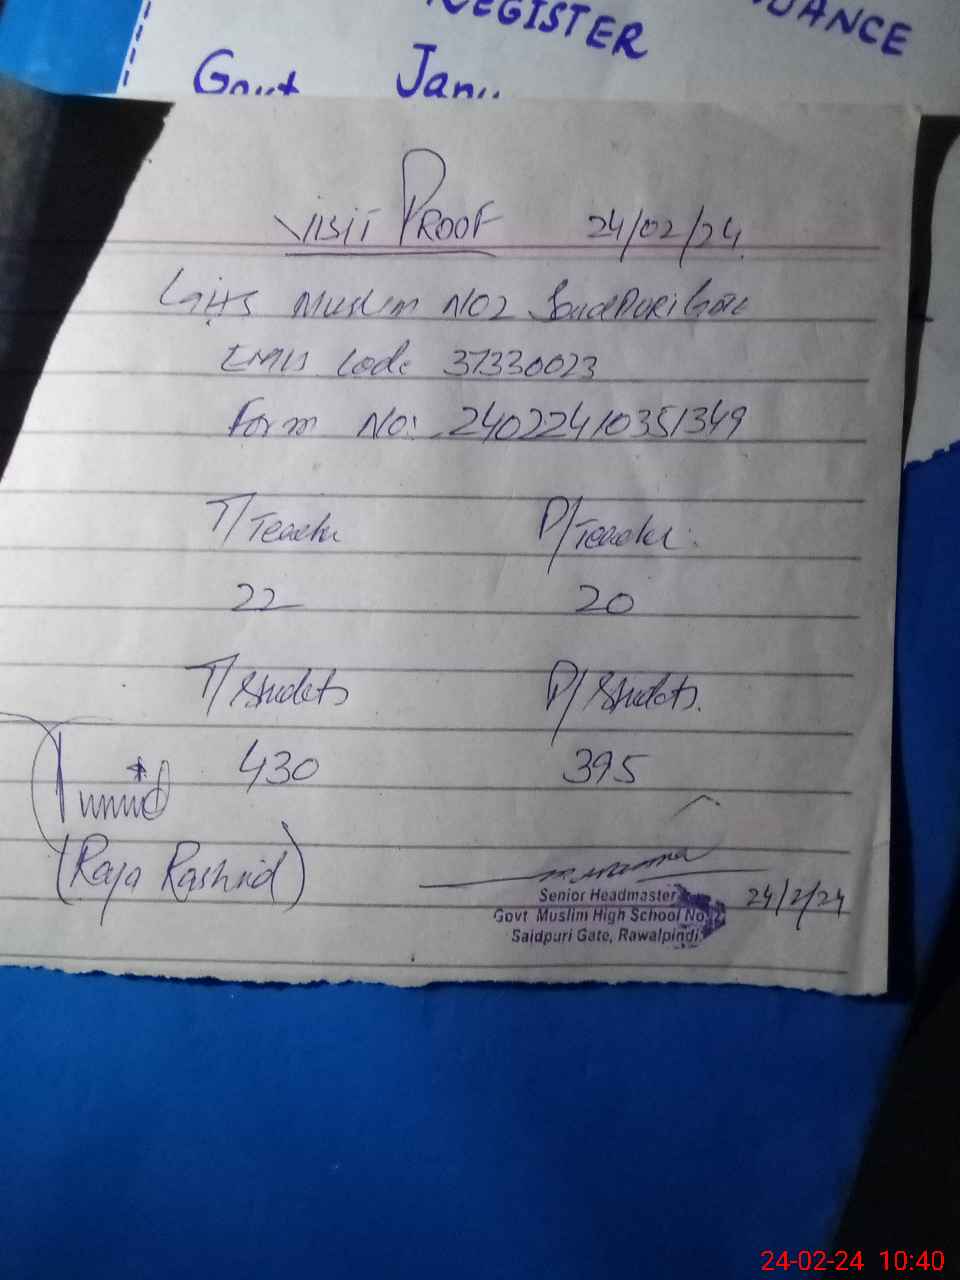 REGISTER
Govt Janu
VISIT PROOF 24/02/24
GHS Muslim NO2 Saidpuri Gate
EMIS Code 37330023
Form No: 24022410351349
T/Teacher P/Teacher
22 20
T/Students P/Students
430 395
(Raja Rashid)
Senior Headmaster
Govt Muslim High School No.2
Saidpuri Gate, Rawalpindi
24/2/24
24-02-24 10:40